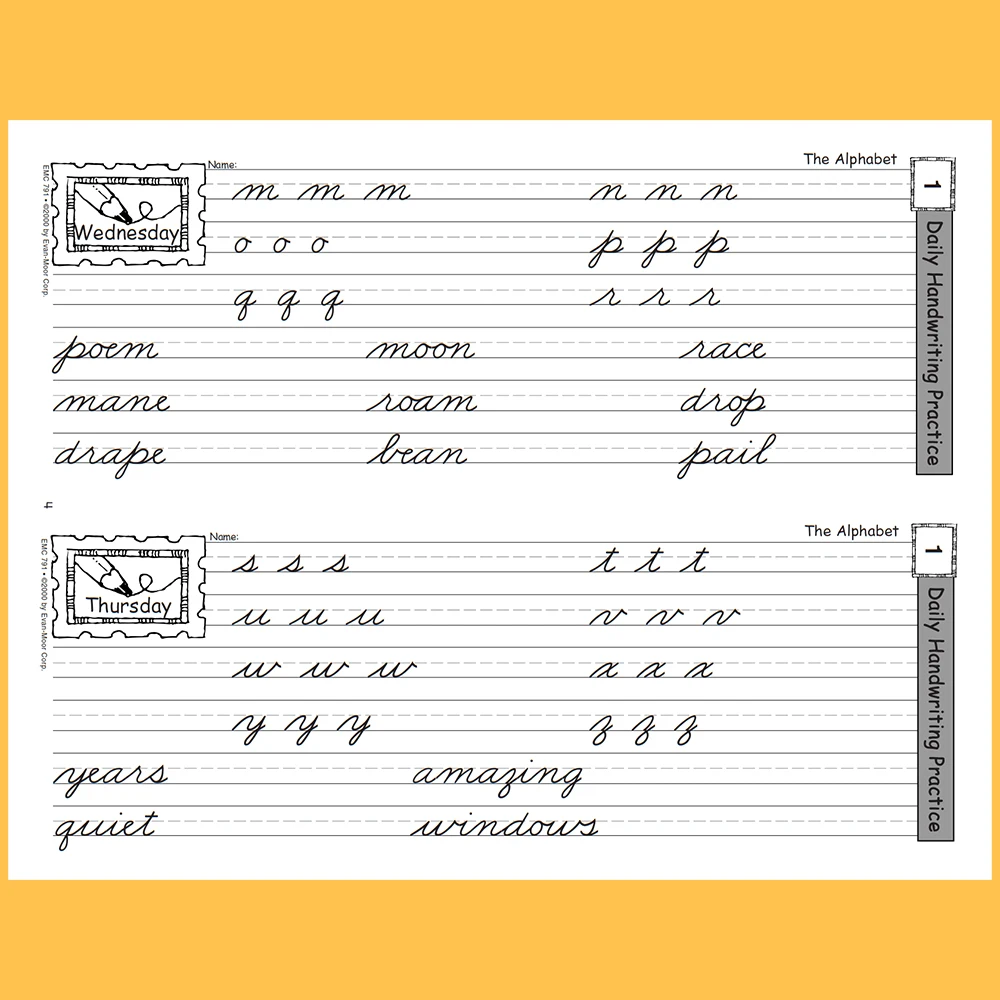 Name: The Alphabet 1
Wednesday
m m m n n n
o o o p p p
q q q r r r
poem moon race
mane roam drop
drape bean pail
EMC 791 • ©2000 by Evan-Moor Corp.
Daily Handwriting Practice
4
Name: The Alphabet 1
Thursday
s s s t t t
u u u v v v
w w w x x x
y y y z z z
years amazing
quiet windows
EMC 791 • ©2000 by Evan-Moor Corp.
Daily Handwriting Practice